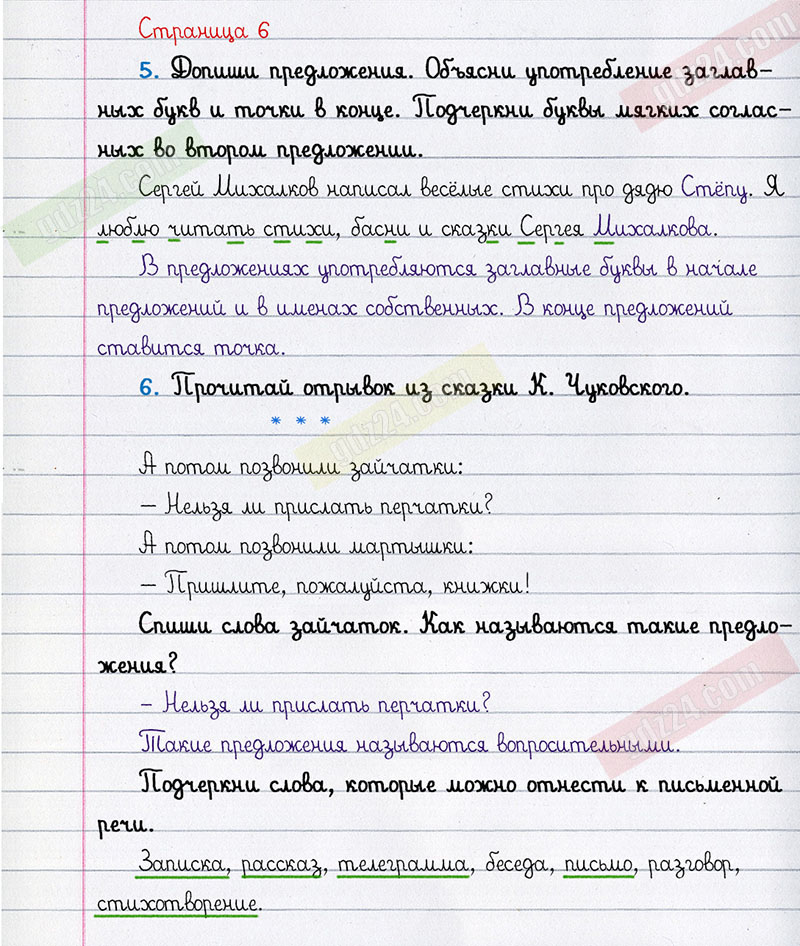 Страница 6
5. Допиши предложения. Объясни употребление заглав-
ных букв и точки в конце. Подчеркни буквы мягких соглас-
ных во втором предложении.
Сергей Михалков написал весёлые стихи про дядю Стёпу. Я
люблю читать стихи, басни и сказки Сергея Михалкова.
В предложениях употребляются заглавные буквы в начале
предложений и в именах собственных. В конце предложений
ставится точка.
6. Прочитай отрывок из сказки К. Чуковского.
* * *
А потом позвонили зайчатки:
– Нельзя ли прислать перчатки?
А потом позвонили мартышки:
– Пришлите, пожалуйста, книжки!
Спиши слова зайчаток. Как называются такие предло-
жения?
– Нельзя ли прислать перчатки?
Такие предложения называются вопросительными.
Подчеркни слова, которые можно отнести к письменной
речи.
Записка, рассказ, телеграмма, беседа, письмо, разговор,
стихотворение.
gdz24.com
gdz24.com
gdz24.com
gdz24.com